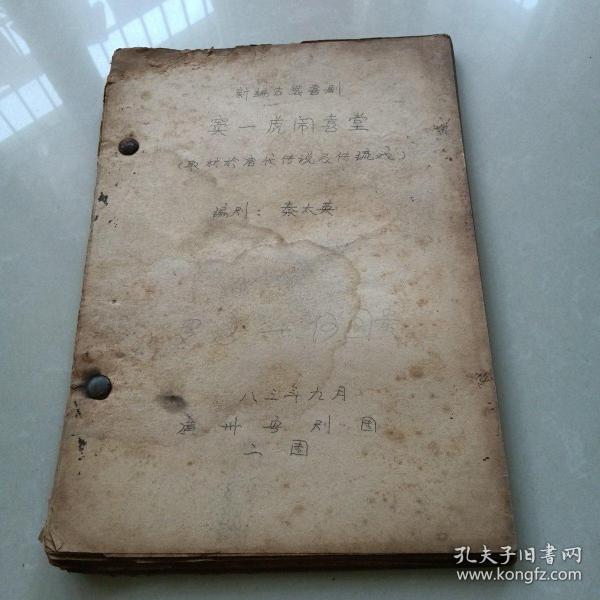 新编古装喜剧
窦一虎闹喜堂
(取材於唐代传说及传统戏)
编剧：秦太英
八三年九月
广州粤剧团
二团
孔夫子旧书网
www.kongfz.com